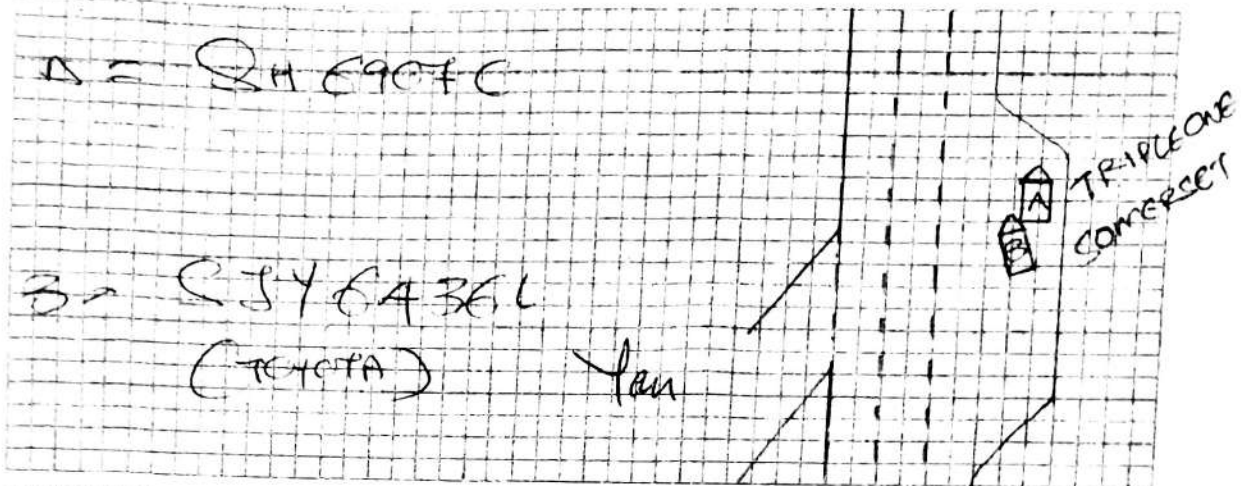 A = SH 6907C
B = SJY6436L
(TOYOTA)
Yau
A
B
TRIPLEONE
SOMERSET